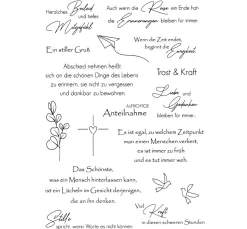 Herzliches Beileid
und tiefes
Mitgefühl
Auch wenn die Reise ein Ende hat
die Erinnerungen bleiben für immer.
Ein stiller Gruß
Wenn die Zeit endet,
beginnt die Ewigkeit
Abschied nehmen heißt:
sich an die schönen Dinge des Lebens
zu erinnern, sie nicht zu vergessen
und dankbar zu bewahren.
Trost & Kraft
Liebe und
Gedanken
bleiben für immer...
AUFRICHTIGE
Anteilnahme
Es ist egal, zu welchem Zeitpunkt
man einen Menschen verliert,
es ist immer zu früh
und es tut immer weh.
Das Schönste,
was ein Mensch hinterlassen kann,
ist ein Lächeln im Gesicht derjenigen,
die an ihn denken.
Stille
spricht, wenn Worte es nicht können.
Viel Kraft
in diesen schweren Stunden